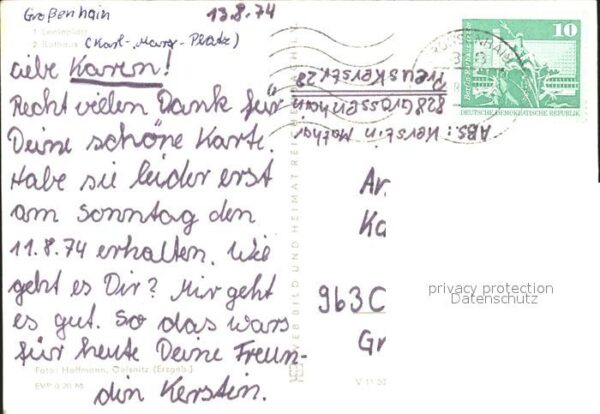 Großenhain
13.8.74
1 Leninplatz
2 Rathaus (Karl-Marx-Platz)
Liebe Karen!
Recht vielen Dank für
Deine schöne Karte.
Habe sie leider erst
am Sonntag den
11.8.74 erhalten. Wie
geht es Dir? Mir geht
es gut. So das wars
für heute Deine Freun-
din Kerstin.
Foto: Hoffmann, Oelsnitz (Erzgeb.)
EVP 0.20 M
V 11 50
VEB BILD UND HEIMAT REICHENBACH
ABS.: Kerstin
828 Grossenhain
Preuskerstr. 28
10
DEUTSCHE DEMOKRATISCHE REPUBLIK
GROSSENHAIN
Ar.
Ka
963C
Gr
privacy protection
Datenschutz